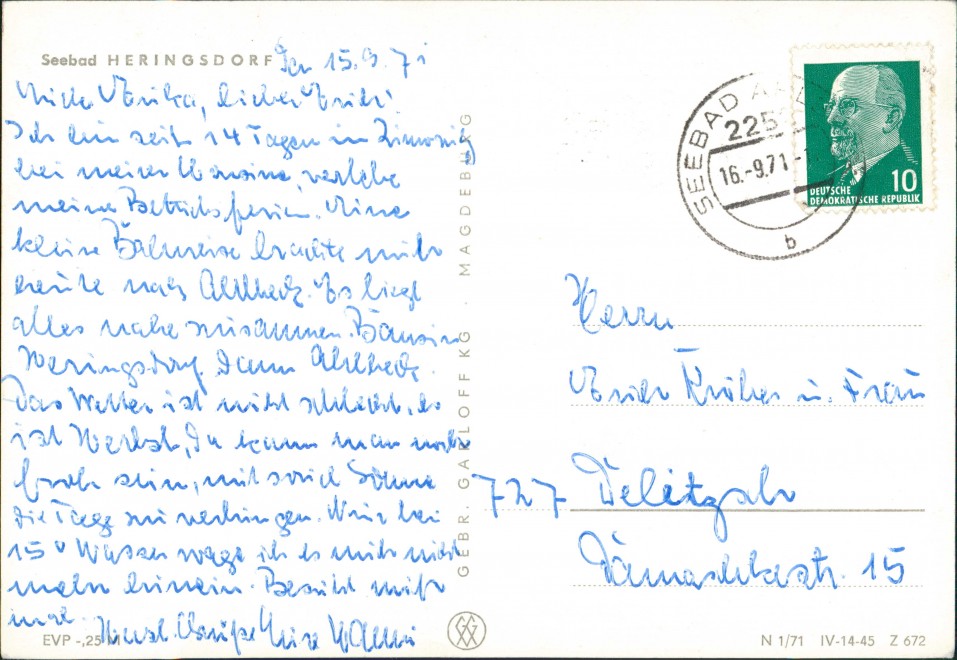 Seebad HERINGSDORF
Den 15.9.71
Liebe Erika, lieber Erich!
Ich bin seit 14 Tagen in Zinnowitz
bei meiner Cousine, verlebe
meine Betriebsferien. Eine
kleine Bahnreise brachte mich
heute nach Ahlbeck. Es liegt
alles nahe zusammen. Bansin
Heringsdorf dann Ahlbeck.
Das Wetter ist nicht schlecht, es
ist Herbst, da kann man noch
froh sein, mit soviel Sonne
die Tage zu verbringen. Nur bei
15° Wasser wage ich es mich nicht
mehr hinein. Besucht mich
mal. Herzl. Grüße Eure
EVP -,25 M
GEBR. GARLOFF KG · MAGDEBURG
SEEBAD
225
16.-9.71-
b
10
DEUTSCHE
DEMOKRATISCHE REPUBLIK
Herrn
Erich Kröber u. Frau
727 Delitzsch
Damaschkestr. 15
N 1/71 IV-14-45 Z 672